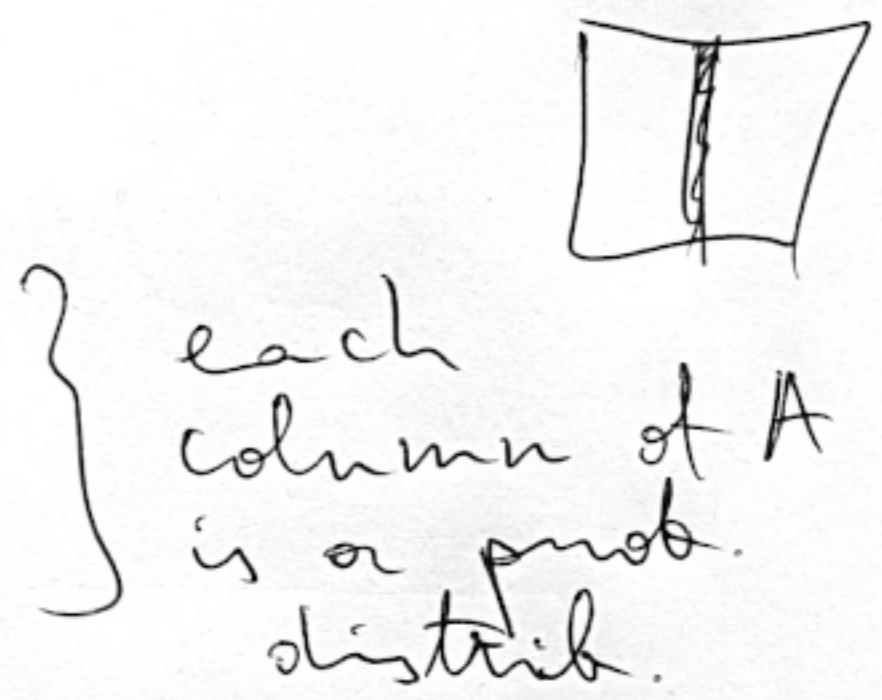 each
column of A
is a prob.
distrib.